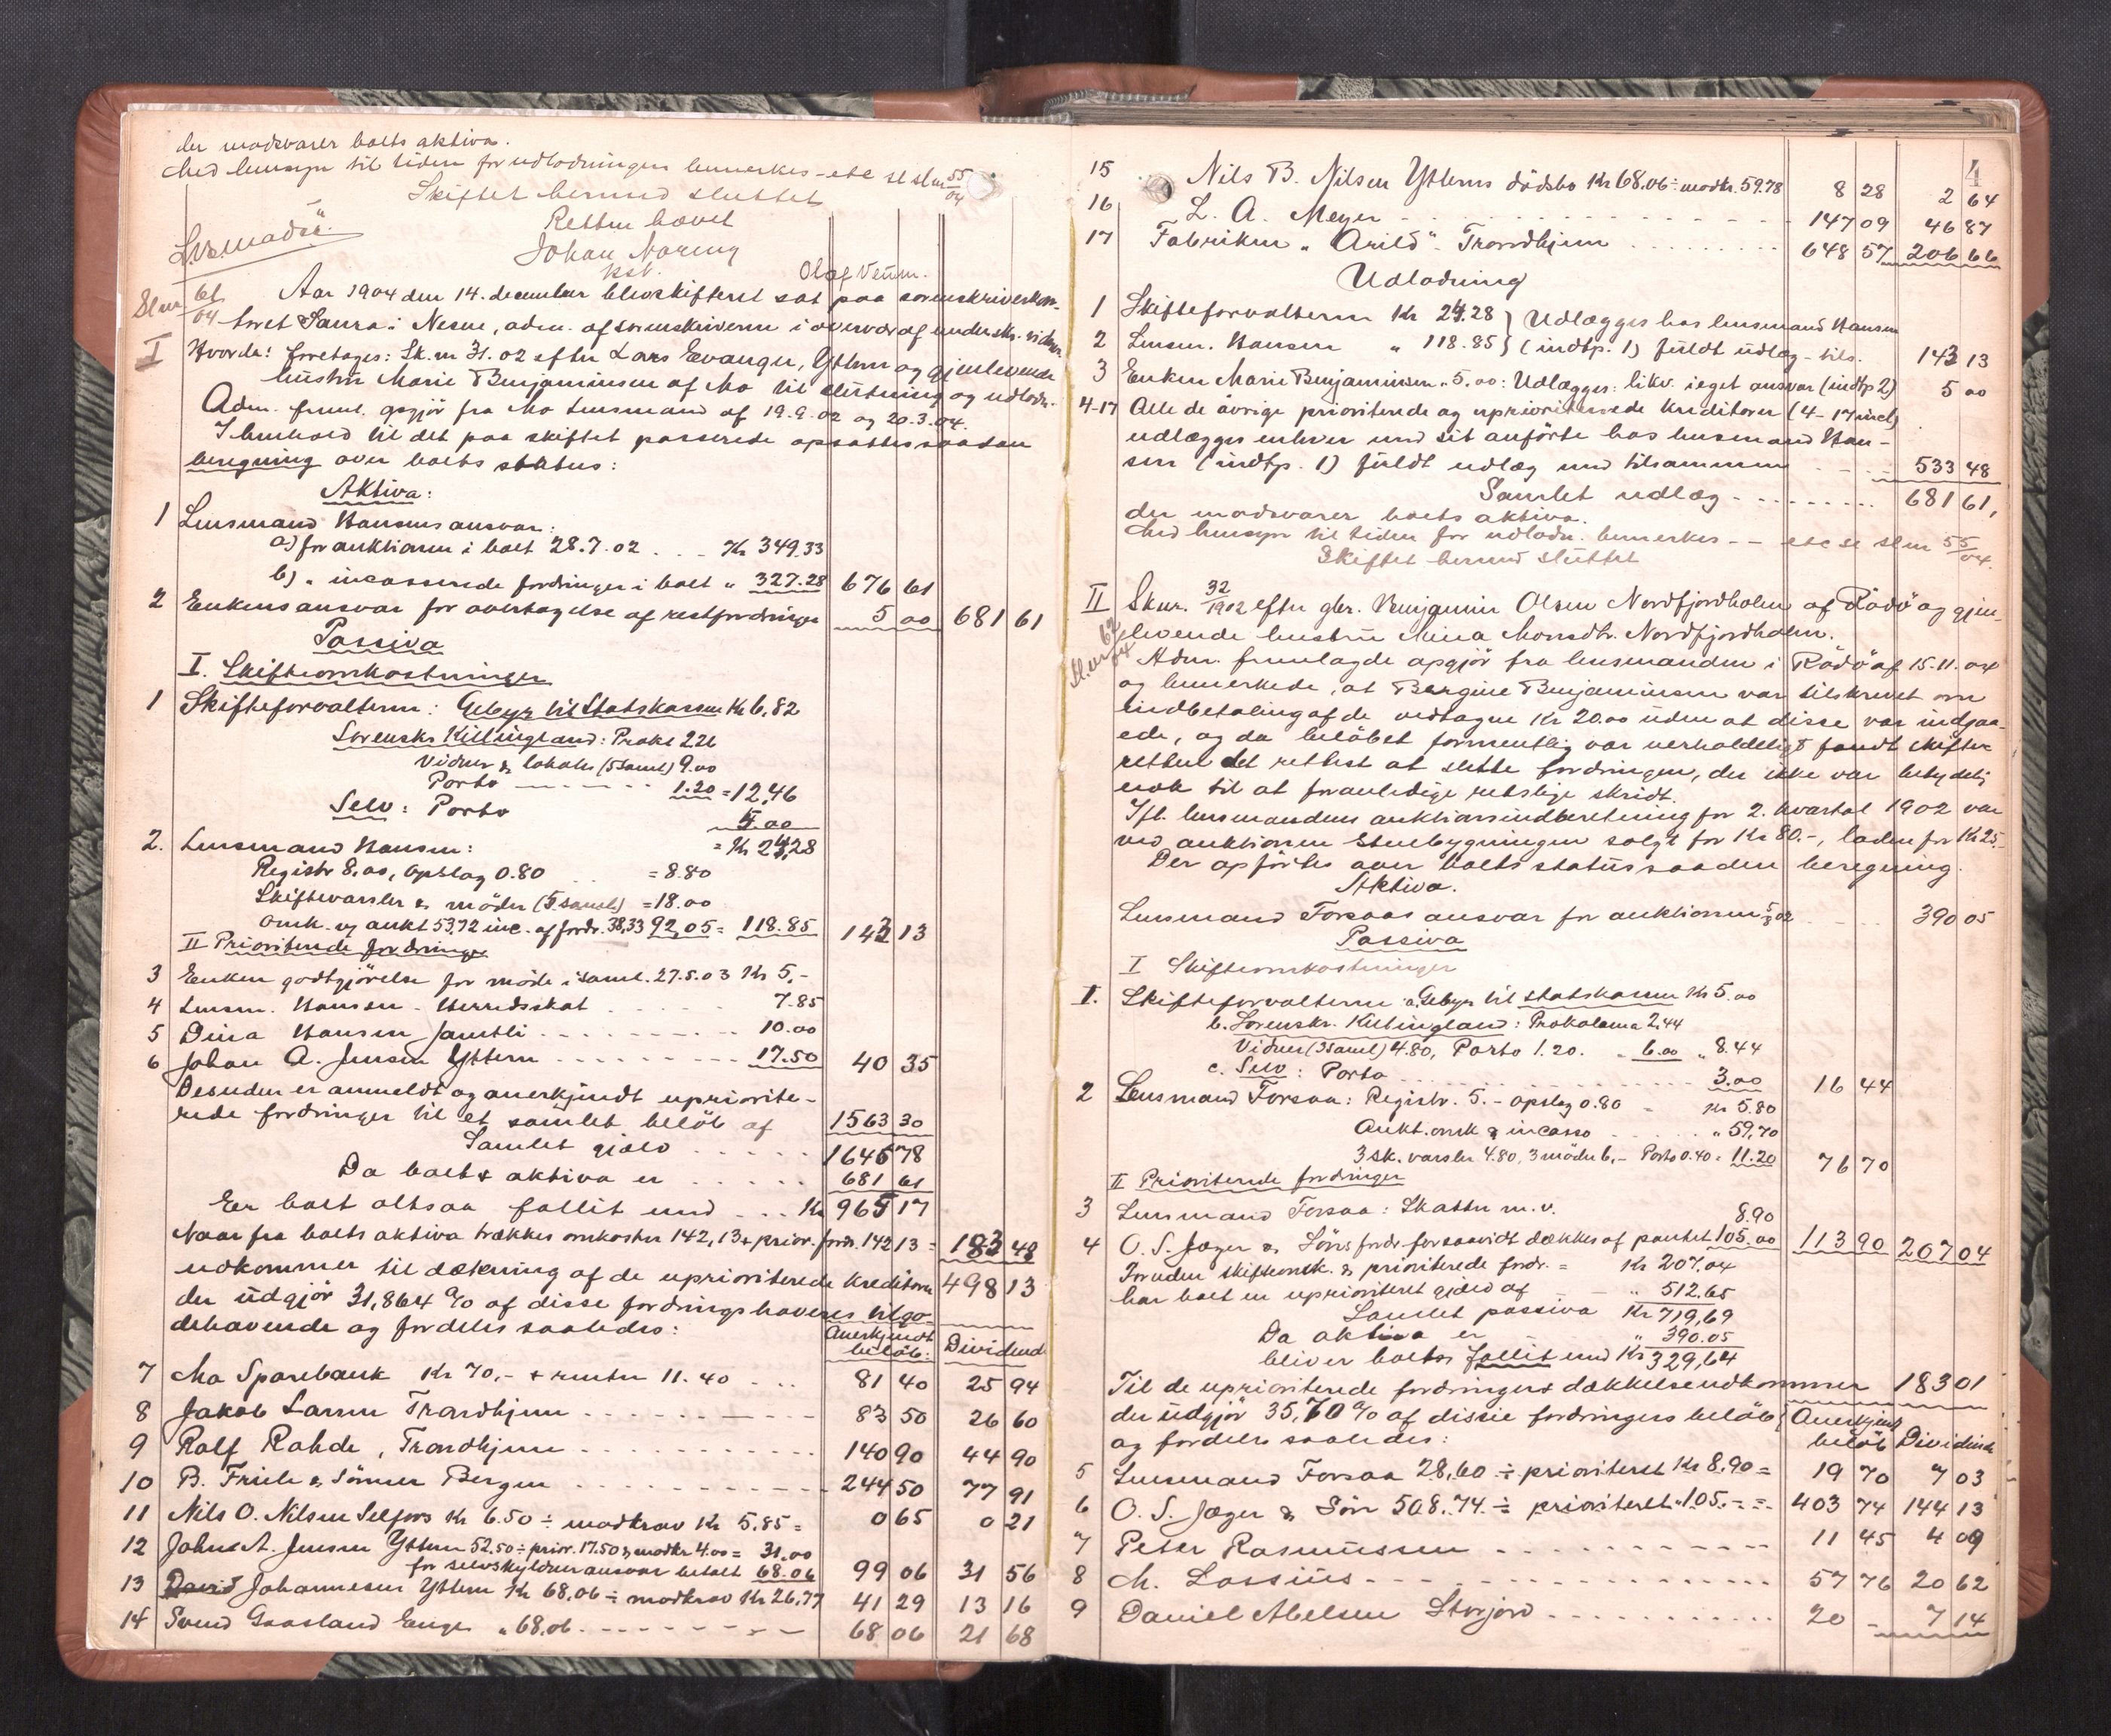 der modsvarer boets aktiva.
Med hensyn til tiden for udlodningen bemerkes - etc se sl nr 55/04
Skiftet hermed sluttet
Retten hævet
Johan Noreng
kst.
Olaf Veum.
Sl nr 61/04
Aar 1904 den 14. december blev skifteret sat paa sorenskriverkon-
toret Saura i Nesne, adm. af sorenskriveren i overvær af undersk. vidner
I Hvorda: foretoges: Sk. nr 31. 02 efter Lars Evanger, Yttern og gjenlevende
hustru Marie Benjaminsen af Mo til slutning og udlodn.
Adm. freml. opgjör fra Mo Lensmand af 19.9.02 og 20.3.04.
I henhold til det paa skiftet passerede opsattes saadan
beregning over boets status:
Aktiva:
1 Lensmand Hansens ansvar:
a) for auktionen i boet 28.7.02 . . . Kr 349.33
b) " incasserede fordringer i boet " 327.28 676 61
2 Enkens ansvar for overtagelse af restfordringer 5 00 681 61
Passiva
I. Skifteomkostninger
1 Skifteforvalteren: Gebyr til Statskassen Kr 6,82
Sorenskr. Killingland: Prokl 2.26
Vidner & lokale (5 saml) 9.00
Porto 1.20 = 12,46
Selv: Porto 5.00
= Kr 24,28
2. Lensmand Hansen:
Registr 8.00, Opslag 0.80 = 8.80
Skiftevarsler & möder (5 samml) = 18.00
Omk. ny aukt 53,72 inc. af fordr. 38,33 92,05 = 118.85 143 13
II Prioriterede fordringer
3 Enken godtgjörelse for möde i saml. 27.5.03 Kr 5,-
4 Lensm. Hansen - Herredsskat 7.85
5 Dina Hansen Jamtli 10.00
6 Johan A. Jensen Yttern 17.50 40 35
Desuden er anmeldt og anerkjendt upriorite-
rede fordringer til et samlet belöb af 1563 30
Samlet gjæld 1646 78
Da boets aktiva er 681 61
Er boet altsaa fallit med . . . Kr 965 17
Naar fra boets aktiva trækkes omkostn 142,13 + prior. fordr. 142 13 = 183 48
udkommer til dækning af de uprioriterede kreditorer 498 13
der udgjör 31,864 % af disse fordringshaveres tilgo-
dehavende og fordeles saaledes:
Anerkjendt belöb: Dividende
7 Mo Sparebank Kr 70,- + renter 11.40 81 40 25 94
8 Jakob Larsen Trondhjem 83 50 26 60
9 Rolf Rohde, Trondhjem 140 90 44 90
10 B. Friele & Sönner Bergen 244 50 77 91
11 Nils O. Nilsen Selfors Kr 6.50 ÷ modkrav Kr 5,85 = 0 65 0 21
12 Johan A. Jensen Yttern 52.50 ÷ prior. 17.50 & modkr 4.00 = 31.00
for selvskyldneransvar betalt 68.06 99 06 31 56
13 Johannesen Yttern Kr 68,06 ÷ modkrav Kr 26,77 41 29 13 16
14 Svend Gaasland Enger " 68.06 68 06 21 68
4
15 Nils B. Nilsen Ytterns dödsbo Kr 68.06 ÷ modkr. 59.78 8 28 2 64
16 L. A. Meyer 147 09 46 87
17 Fabriken "Arild" Trondhjem 648 57 206 66
Udlodning
1 Skifteforvalteren Kr 24.28 } Udlægges hos lensmand Hansen
2 Lensm. Hansen " 118.85 } (indtp. 1) fuldt udlæg - tils. 143 13
3 Enken Marie Benjaminsen " 5.00: Udlægges: likv. i eget ansvar (indtp 2) 5 00
4-17 Alle de övrige prioriterede og uprioriterede kreditorer (4-17 incl)
udlægges enhver med sit anförte hos lensmand Han-
sen (indtp. 1) fuldt udlæg med tilsammen 533 48
Samlet udlæg 681 61,
der modsvarer boets aktiva.
Med hensyn til tiden for udlodn. bemerkes - - etc se sl nr 55/04.
Skiftet hermed sluttet
II Sk nr. 32/1902 efter gbr. Benjamin Olsen Nordfjordholm af Rödö og gjen-
Sl. nr 62/04
levende hustru Mina Monsdtr. Nordfjordholm.
Adm. fremlagde opgjör fra lensmanden i Rödö af 15.11.04
og bemerkede, at Bergine Benjaminsen var tilskrevet om
indbetaling af de vedtagne Kr 20.00 uden at disse var indgaa-
ede, og da belöbet formentlig var uerholdeligt fandt skifte-
retten det rettest at slette fordringen, der ikke var betydelig
nok til at foranledige retslige skridt.
Ifl. lensmandens auktionsindberetning for 2. kvartal 1902 var
ved auktionen Stuebygningen solgt for Kr 80.-, laden for Kr 25.-
Der opförtes over boets status saadan beregning.
Aktiva.
Lensmand Forsaas ansvar for auktionen 5/3 02 390 05
Passiva
I Skifteomkostninger
1. Skifteforvalteren: a. Gebyr til statskassen Kr 5.00
b. Sorenskr. Killingland: Proklama 2.44
Vidner (3 saml) 4.80, Porto 1.20. " 6.00 " 8.44
c. Selv: Porto 3.00 16 44
2 Lensmand Forsaa: Registr. 5.- opslag 0.80 Kr 5.80
Aukt.omk & incasso " 59,70
3 sk. varsler 4.80, 3 möder 6,- Porto 0.40 = 11.20 76 70
II Prioriterede fordringer
3 Lensmand Forsaa: Skatter m. v. 8.90
4 O. S. Jæger & Söns fordr. forsaavidt dækkes af pantet 105.00 113 90 207 04
Foruden skifteomk. & prioriterede fordr. = Kr 207.04
har boet en uprioriteret gjæld af " 512.65
Samlet passiva Kr 719,69
Da aktiva er " 390.05
bliver boets fallit med Kr 329,64
Til de uprioriterede fordringers dækkelse udkommer 183 01
der udgjör 35,70 % af dissie fordringers belöb
og fordeles saaledes:
Anerkjendt belöb Dividende
5 Lensmand Forsaa 28,60 ÷ prioriteret Kr 8,90 = 19 70 7 03
6 O. S. Jæger & Sön 508.74 ÷ prioriteret " 105.- = 403 74 144 13
7 Peter Rasmussen 11 45 4 09
8 M. Lossius 57 76 20 62
9 Daniel Abelsen Storjord 20 - 7 14